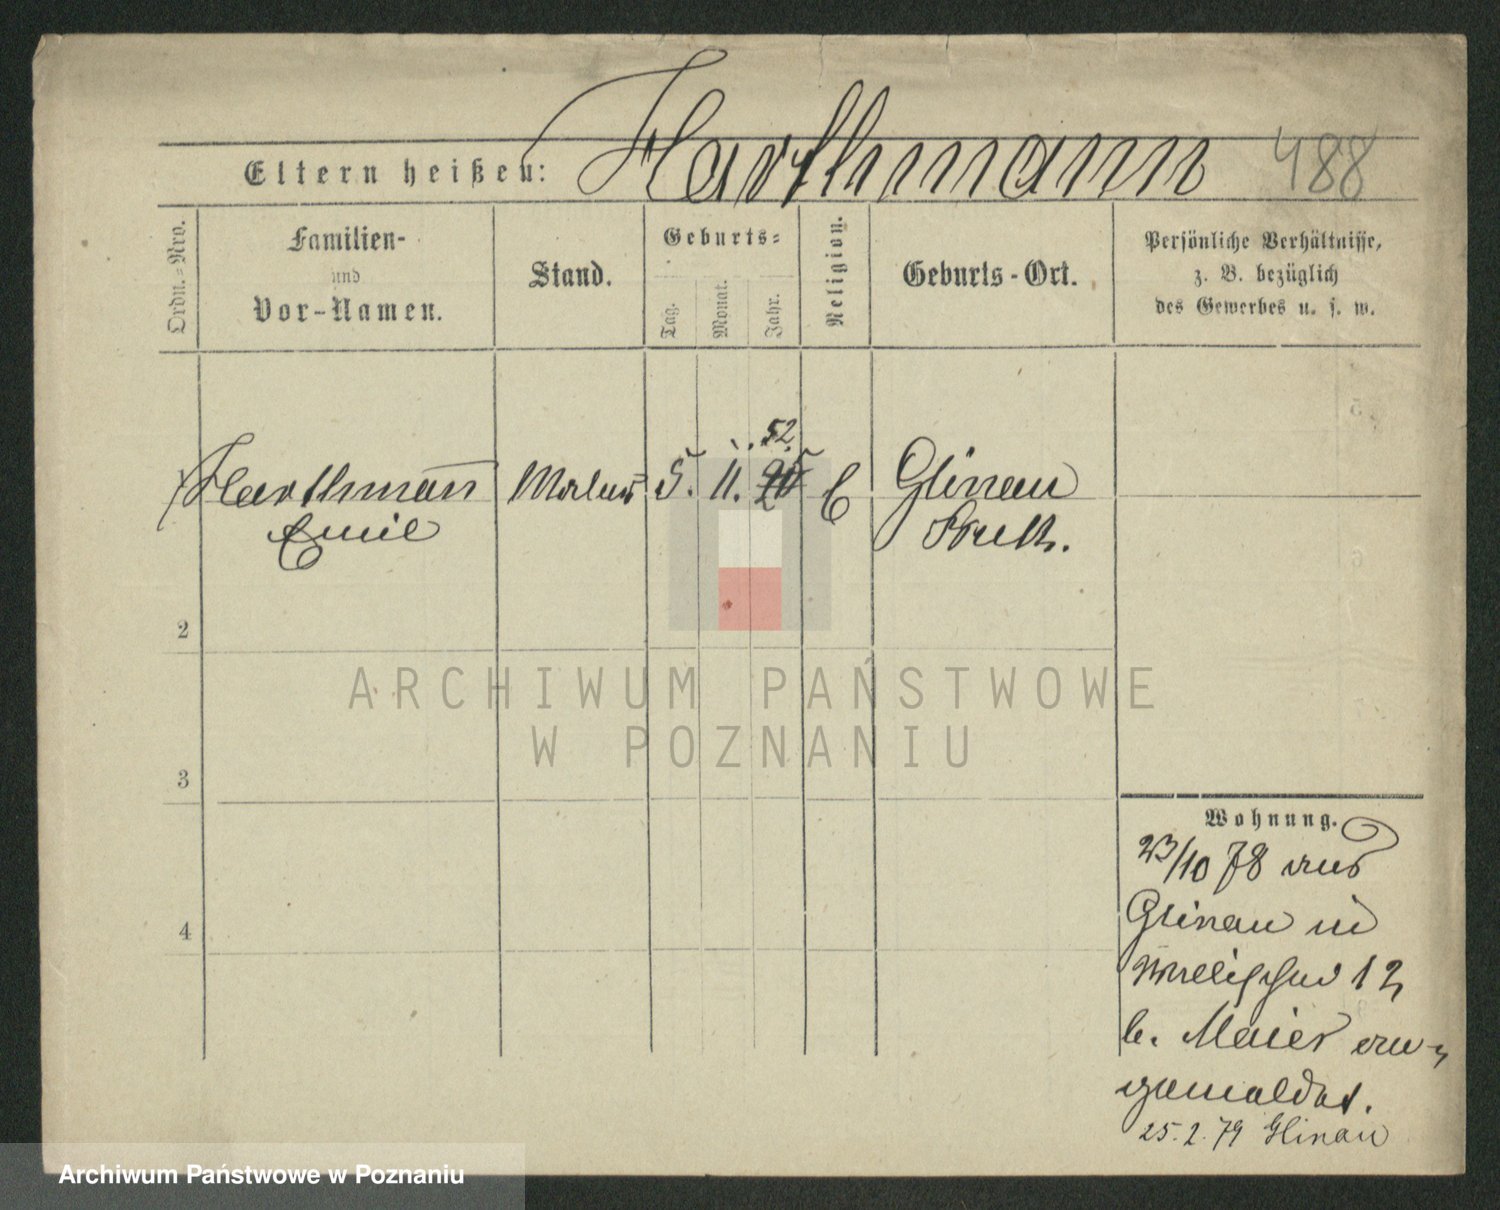 Eltern heißen: Harthmann 488
Ordn.-Nro.
Familien-
und
Vor-Namen.
Stand.
Geburts-
Tag.
Monat.
Jahr.
Religion.
Geburts-Ort.
Persönliche Verhältnisse,
z. B. bezüglich
des Gewerbes u. s. w.
52.
Harthmann 5. 11. Glinau
Emil
2
3
4
ARCHIWUM PAŃSTWOWE
W POZNANIU
Wohnung.
23/10 78 aus
Glinau in
12
b. Maier an-
gemeldet.
25. 2. 79 Glinau
Archiwum Państwowe w Poznaniu